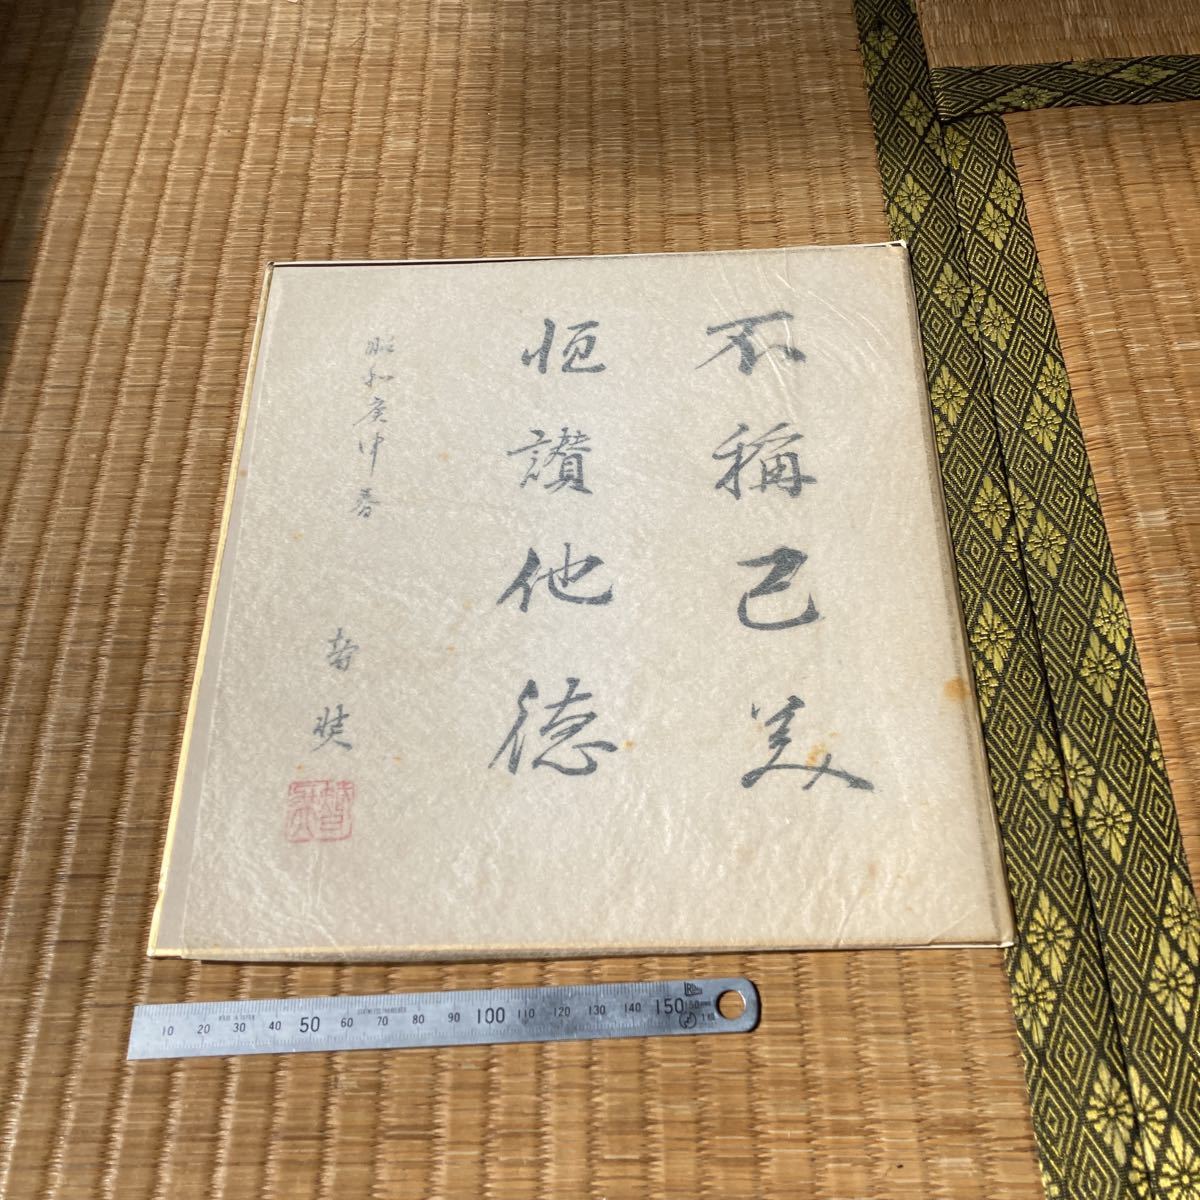 不稱己美
恒讃他徳
昭和庚申春
10 20 30 40 50 60 70 80 90 100 110 120 130 140 150
MADE IN JAPAN